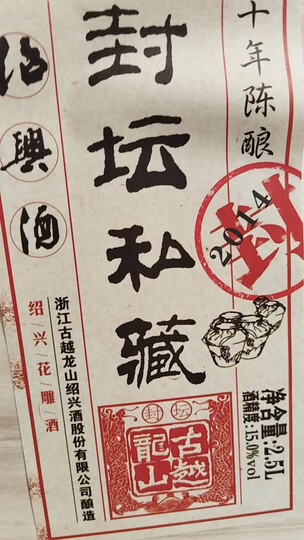 十年陈酿
封坛私藏
绍興酒
浙江古越龙山绍兴酒股份有限公司酿造
绍/兴/花/雕/酒
封
2014
净含量:2.5L
酒精度:15.0%vol
封坛
古越龍山